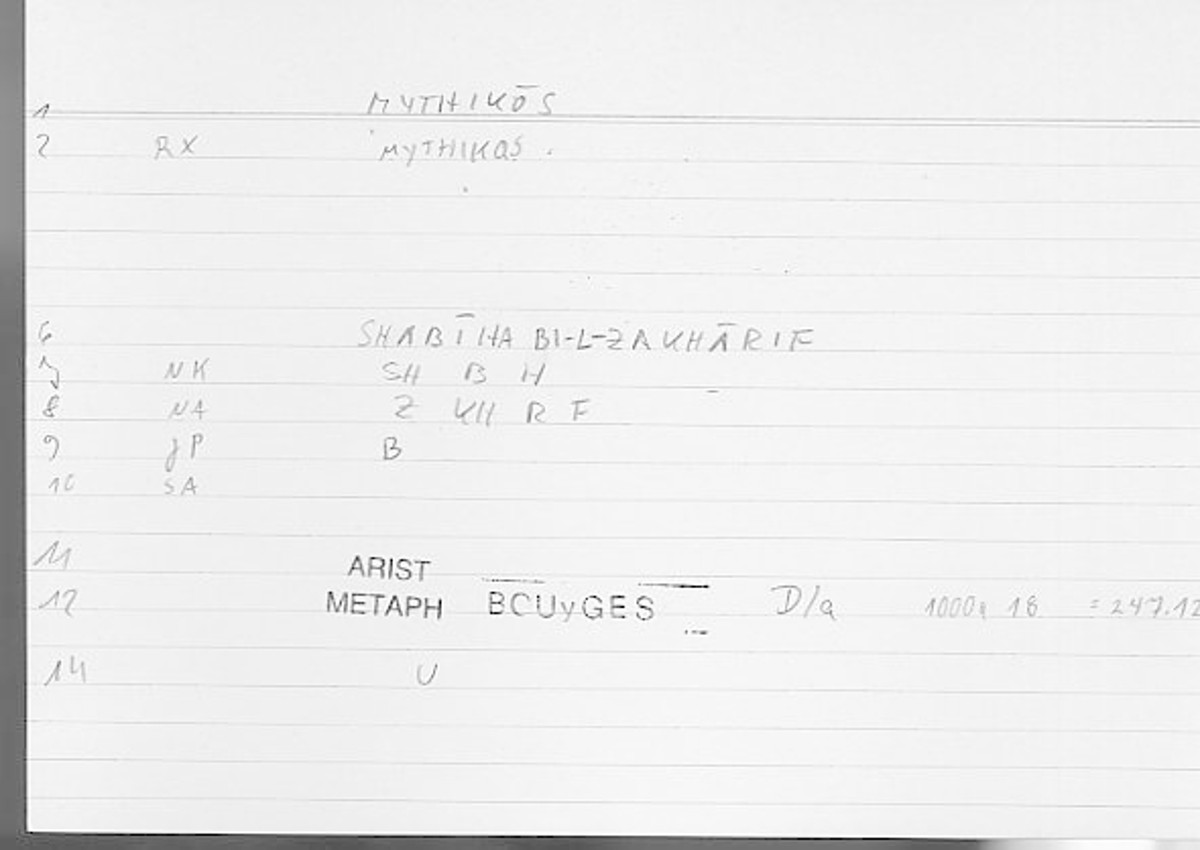 1 MYTHIKŌS
2 RX MYTHIKOS .
6 SHABĪHA BI-L-ZAKHĀRIF
7 NK SH B H
8 NA Z KH R F
9 JP B
10 SA
11 ARIST
12 METAPH BOUyGES D/a 1000a 18 = 247.12
14 U